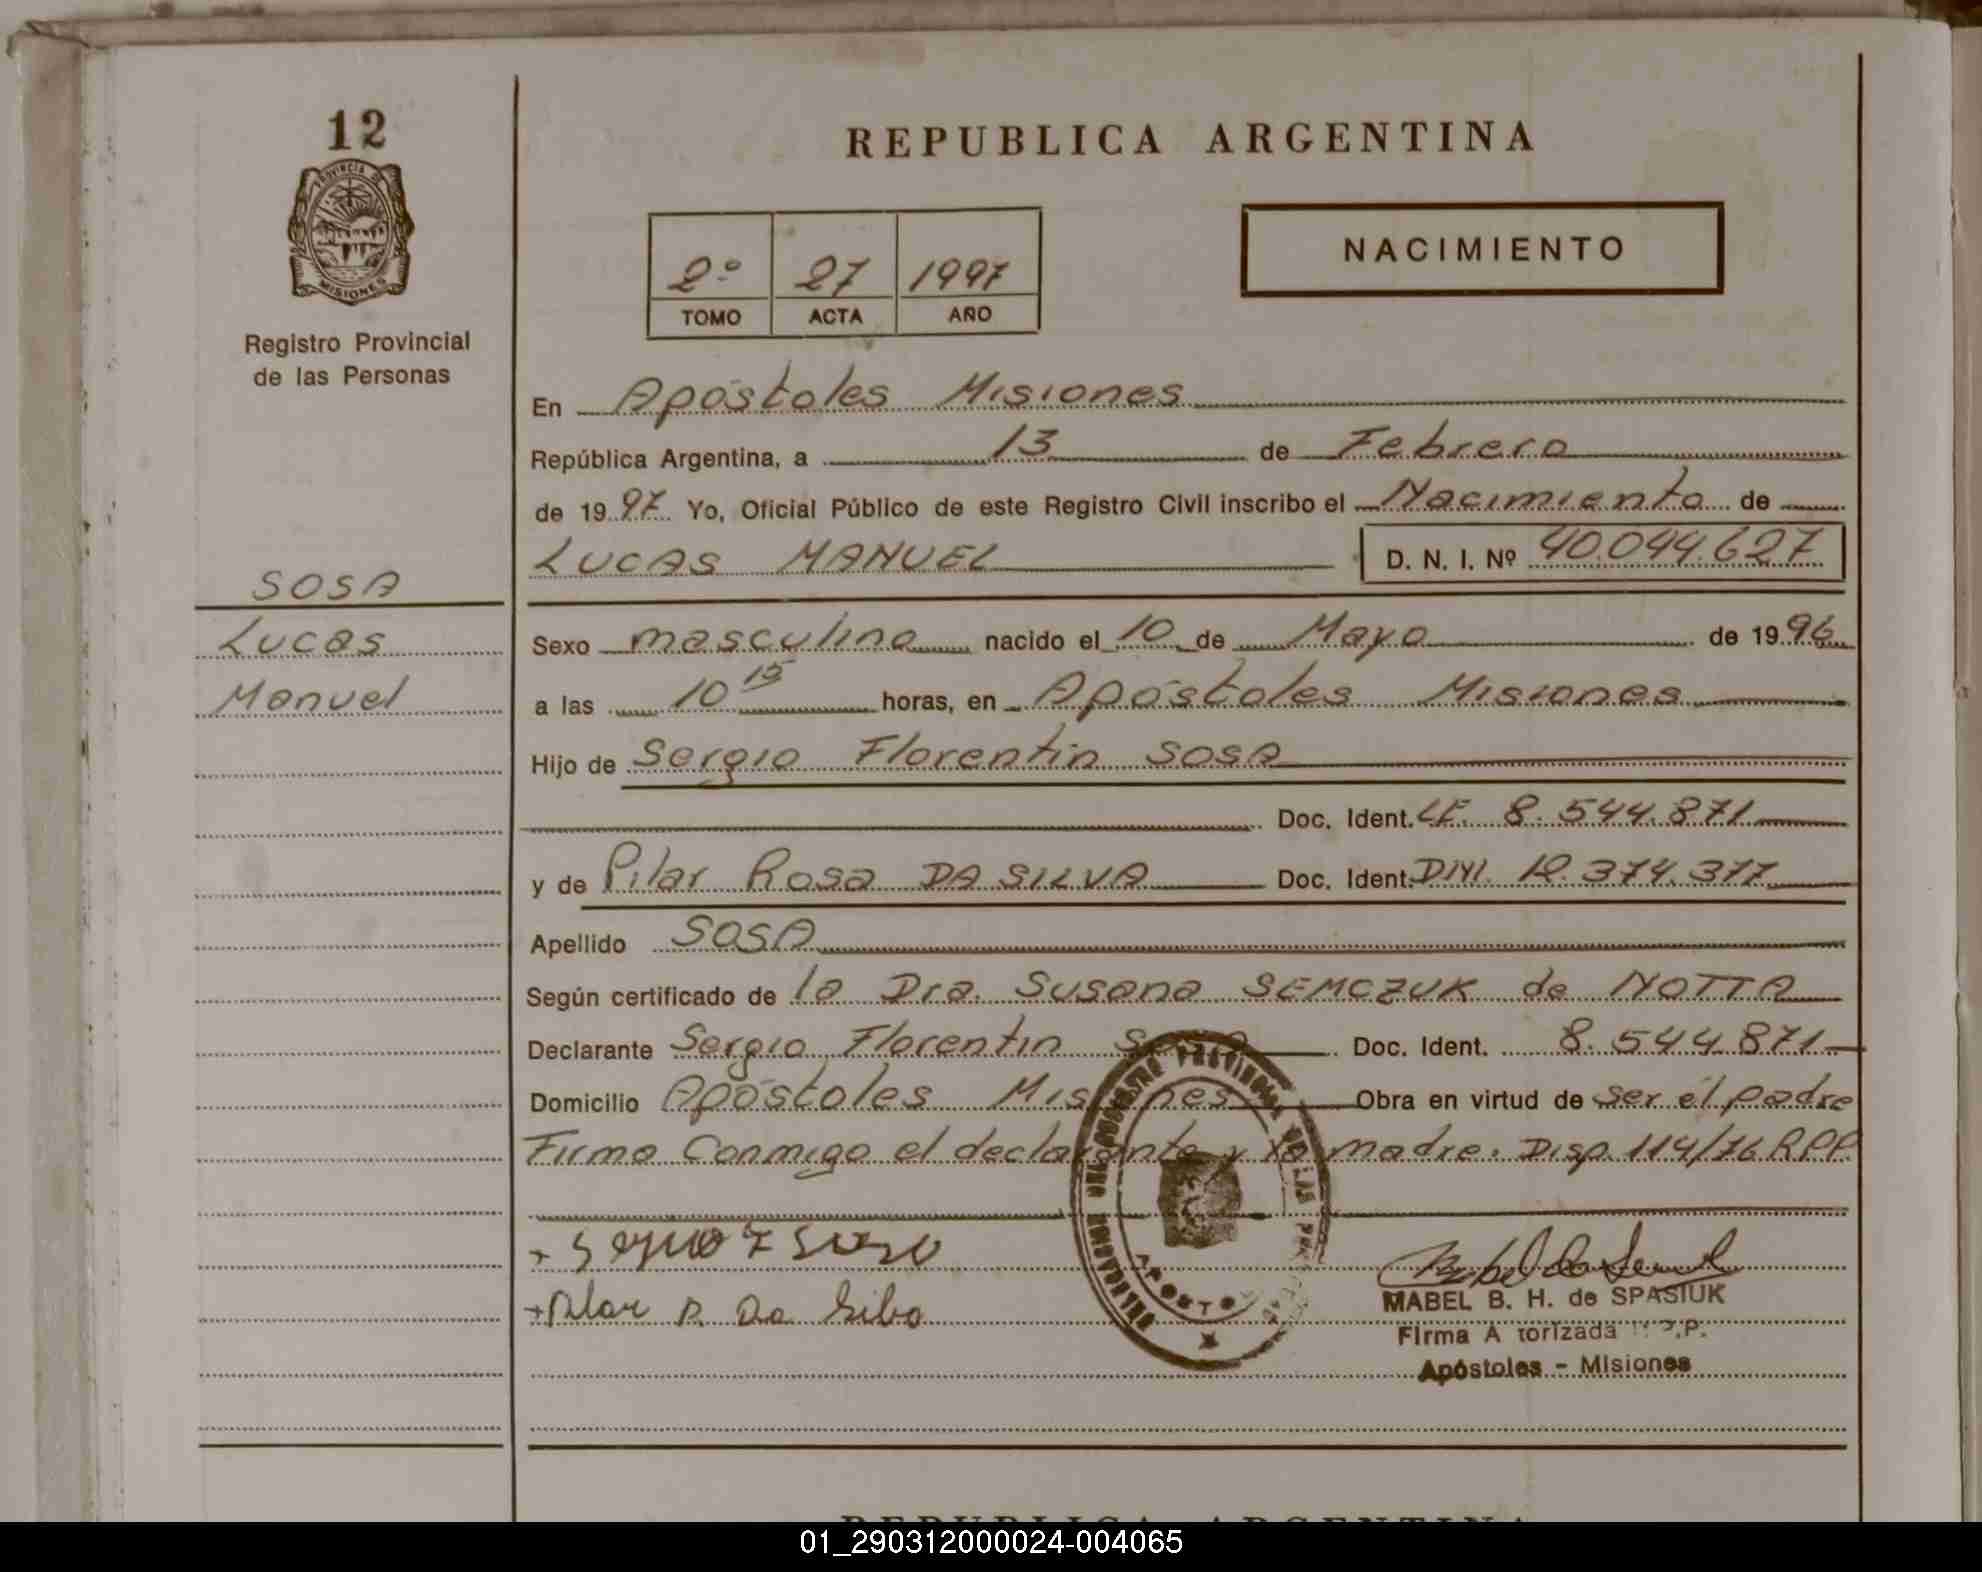 12
PROVINCIA DE
MISIONES
Registro Provincial
de las Personas
REPUBLICA ARGENTINA
2º 27 1997
TOMO ACTA AÑO
NACIMIENTO
En Apóstoles Misiones
República Argentina, a 13 de Febrero
de 1997 Yo, Oficial Público de este Registro Civil inscribo el Nacimiento de
LUCAS MANUEL D. N. I. Nº 40.044.627
SOSA
Lucas
Manuel
Sexo masculino nacido el 10 de Mayo de 1996
a las 10 15 horas, en Apóstoles Misiones
Hijo de Sergio Florentin SOSA
Doc. Ident. LE. 8.544.871
y de Pilar Rosa DA SILVA Doc. Ident. DNI. 12.374.377
Apellido SOSA
Según certificado de la Dra. Susana SEMCZUK de NOTTA
Declarante Sergio Florentin Sosa Doc. Ident. 8.544.871
Domicilio Apóstoles Misiones Obra en virtud de ser él padre
Firma Conmigo el declarante y la madre. Disp. 114/76 RPP.
MABEL B. H. de SPASIUK
Firma A torizada
Apóstoles - Misiones
REPUBLICA ARGENTINA
01_290312000024-004065